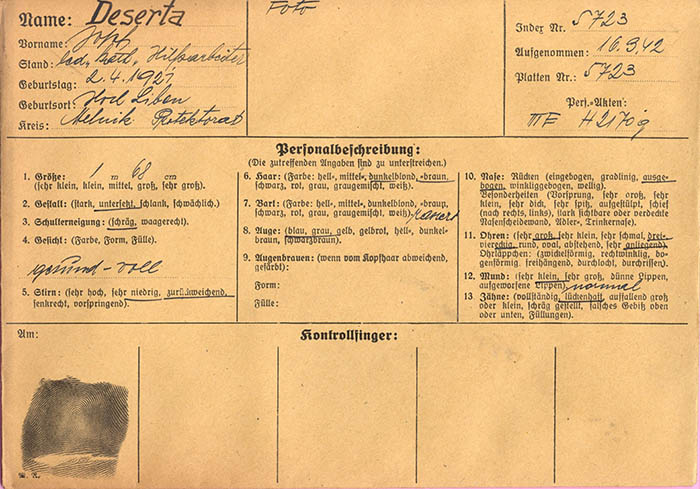 Name: Deserta
Vorname: Josef
Stand: led, kath, Hilfsarbeiter
Geburtstag: 2.4.1921
Geburtsort: Hoch Liben
Kreis: Melnik Protektorat
Foto
Index Nr. 5723
Aufgenommen: 16.9.42
Platten Nr.: 5723
Pers.-Akten:
III E H 2170 g
Personalbeschreibung:
(Die zutreffenden Angaben sind zu unterstreichen.)
1. Größe: 1 m 68 cm
(sehr klein, klein, mittel, groß, sehr groß).
2. Gestalt: (stark, untersetzt, schlank, schwächlich).
3. Schulterneigung: (schräg, waagerecht).
4. Gesicht: (Farbe, Form, Fülle).
gesund - voll
5. Stirn: (sehr hoch, sehr niedrig, zurückweichend,
senkrecht, vorspringend).
6. Haar: (Farbe: hell-, mittel-, dunkelblond, -braun,
schwarz, rot, grau, graugemischt, weiß).
7. Bart: (Farbe: hell-, mittel-, dunkelblond, -braun,
schwarz, rot, grau, graugemischt, weiß) rasiert
8. Auge: (blau, grau, gelb, gelbrot, hell-, dunkel-
braun, schwarzbraun).
9. Augenbrauen: (wenn vom Kopfhaar abweichend,
gefärbt):
Form:
Fülle:
10. Nase: Rücken (eingebogen, gradlinig, ausge-
bogen, winkliggebogen, wellig).
Besonderheiten (Vorsprung, sehr groß, sehr
klein, sehr dick, sehr spitz, aufgestülpt, schief
(nach rechts, links), stark sichtbare oder verdeckte
Nasenscheidewand, Adler-, Trinkernase).
11. Ohren: (sehr groß, sehr klein, sehr schmal, drei-,
viereckig, rund, oval, abstehend, sehr anliegend).
Ohrläppchen: (zwickelförmig, rechtwinklig, bo-
genförmig, freihängend, durchlocht, durchrissen).
12. Mund: (sehr klein, sehr groß, dünne Lippen,
aufgeworfene Lippen) normal
13. Zähne: (vollständig, lückenhaft, auffallend groß
oder klein, schräg gestellt, falsches Gebiß oben
oder unten, Füllungen).
Am:
Kontrollfinger: